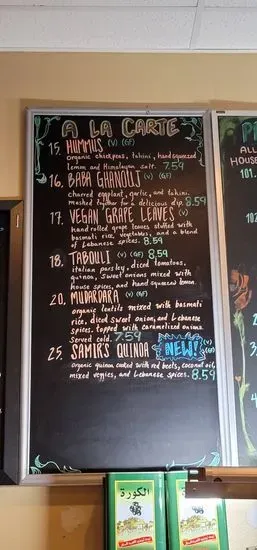 A LA CARTE
15. HUMMUS (V) (GF)
organic chickpeas, tahini, hand squeezed
lemon and Himalayan salt. 7.59
16. BABA GHANOUJ (V) (GF)
charred eggplant, garlic, and tahini.
mashed together for a delicious dip. 8.59
17. VEGAN GRAPE LEAVES (V)
hand rolled grape leaves stuffed with
basmati rice, vegetables, and a blend
of Lebanese spices. 8.59
18. TABOULI (V) (GF) 8.59
italian parsley, diced tomatoes,
quinoa, sweet onions mixed with
house spices, and hand squeezed lemon.
20. MUDARDARA (V) (GF)
organic lentils mixed with basmati
rice, diced sweet onion, and Lebanese
spices. topped with caramelized onions.
Served cold. 7.59
25. SAMIR'S QUINOA NEW! (V) (GF)
organic quinoa cooked with red beets, coconut oil,
mixed veggies, and Lebanese spices. 8.59
ALL
HOUSE
101.
102.
الكورة
الكورة